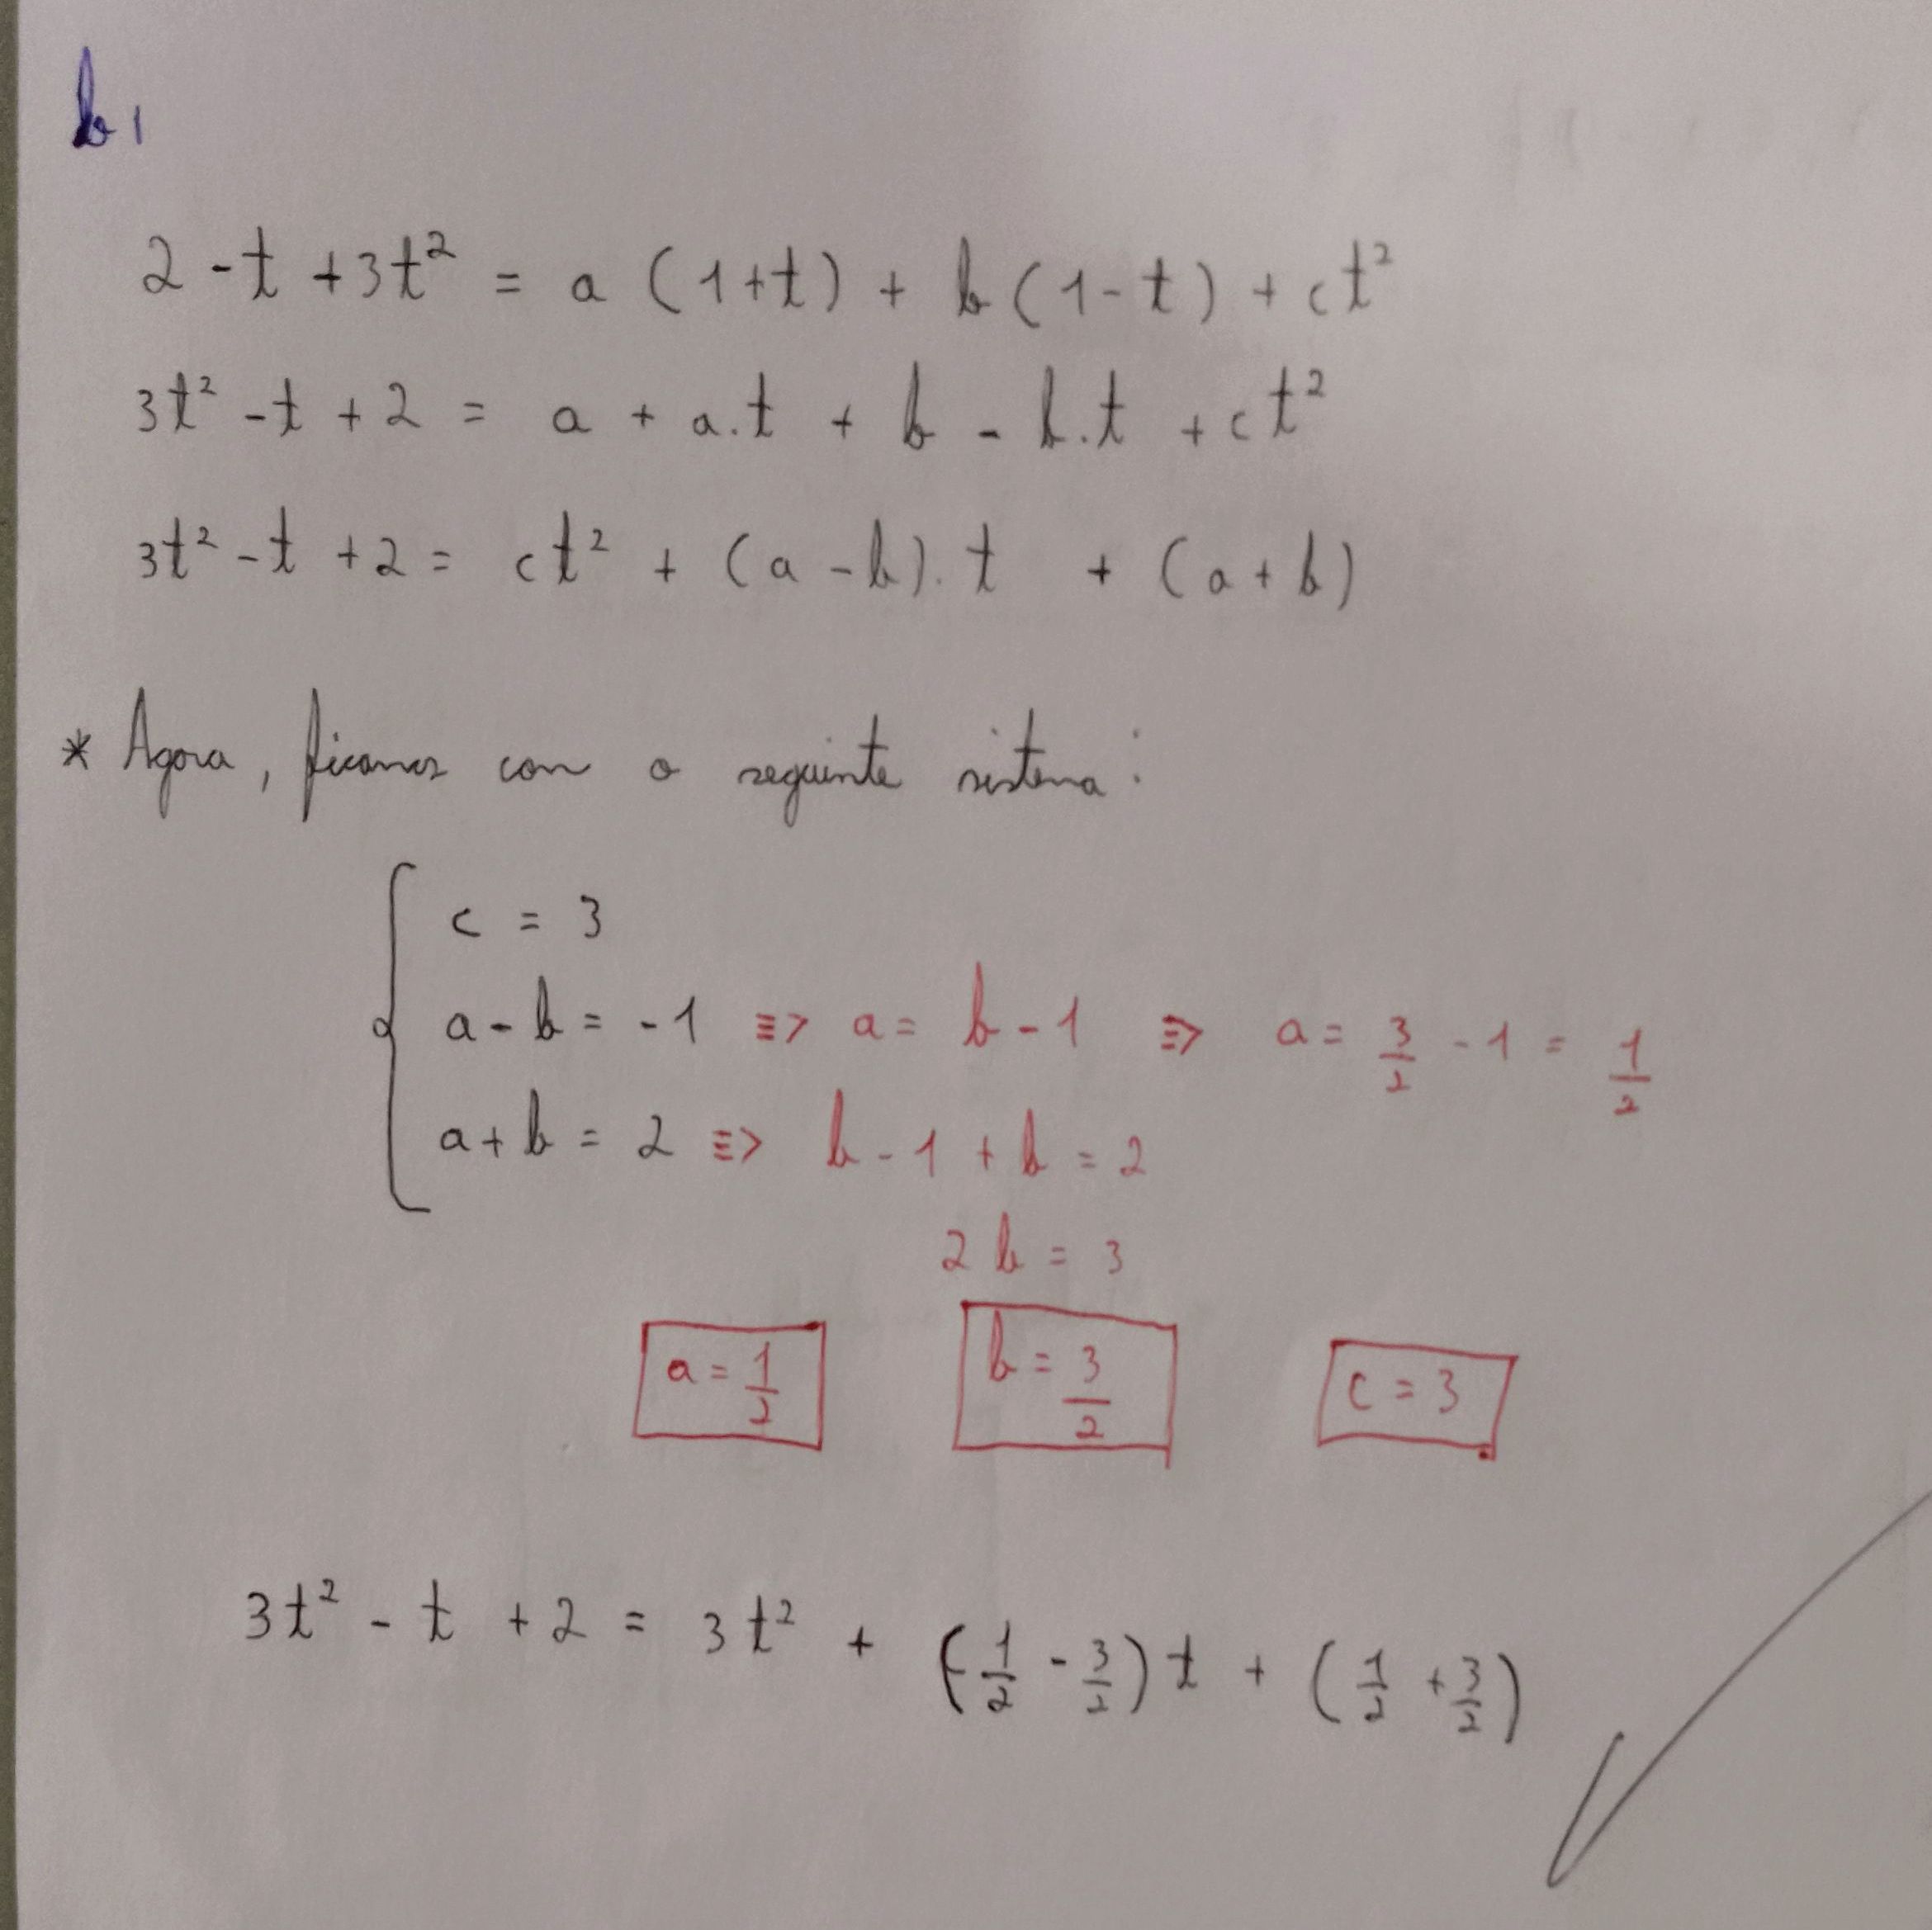 b)
2 - t + 3t² = a (1+t) + b (1-t) + ct²
3t² - t + 2 = a + a.t + b - b.t + ct²
3t² - t + 2 = ct² + (a - b). t + (a + b)
* Agora, ficamos com o seguinte sistema:
c = 3
a - b = -1 => a = b - 1 => a = 3/2 - 1 = 1/2
a + b = 2 => b - 1 + b = 2
2b = 3
a = 1/2 b = 3/2 c = 3
3t² - t + 2 = 3t² + (1/2 - 3/2) t + (1/2 + 3/2)